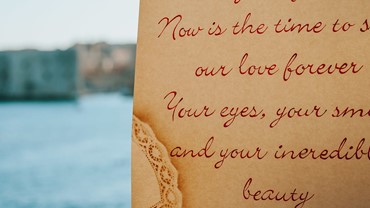 Now is the time to s
our love forever
Your eyes, your sm
and your incredibl
beauty